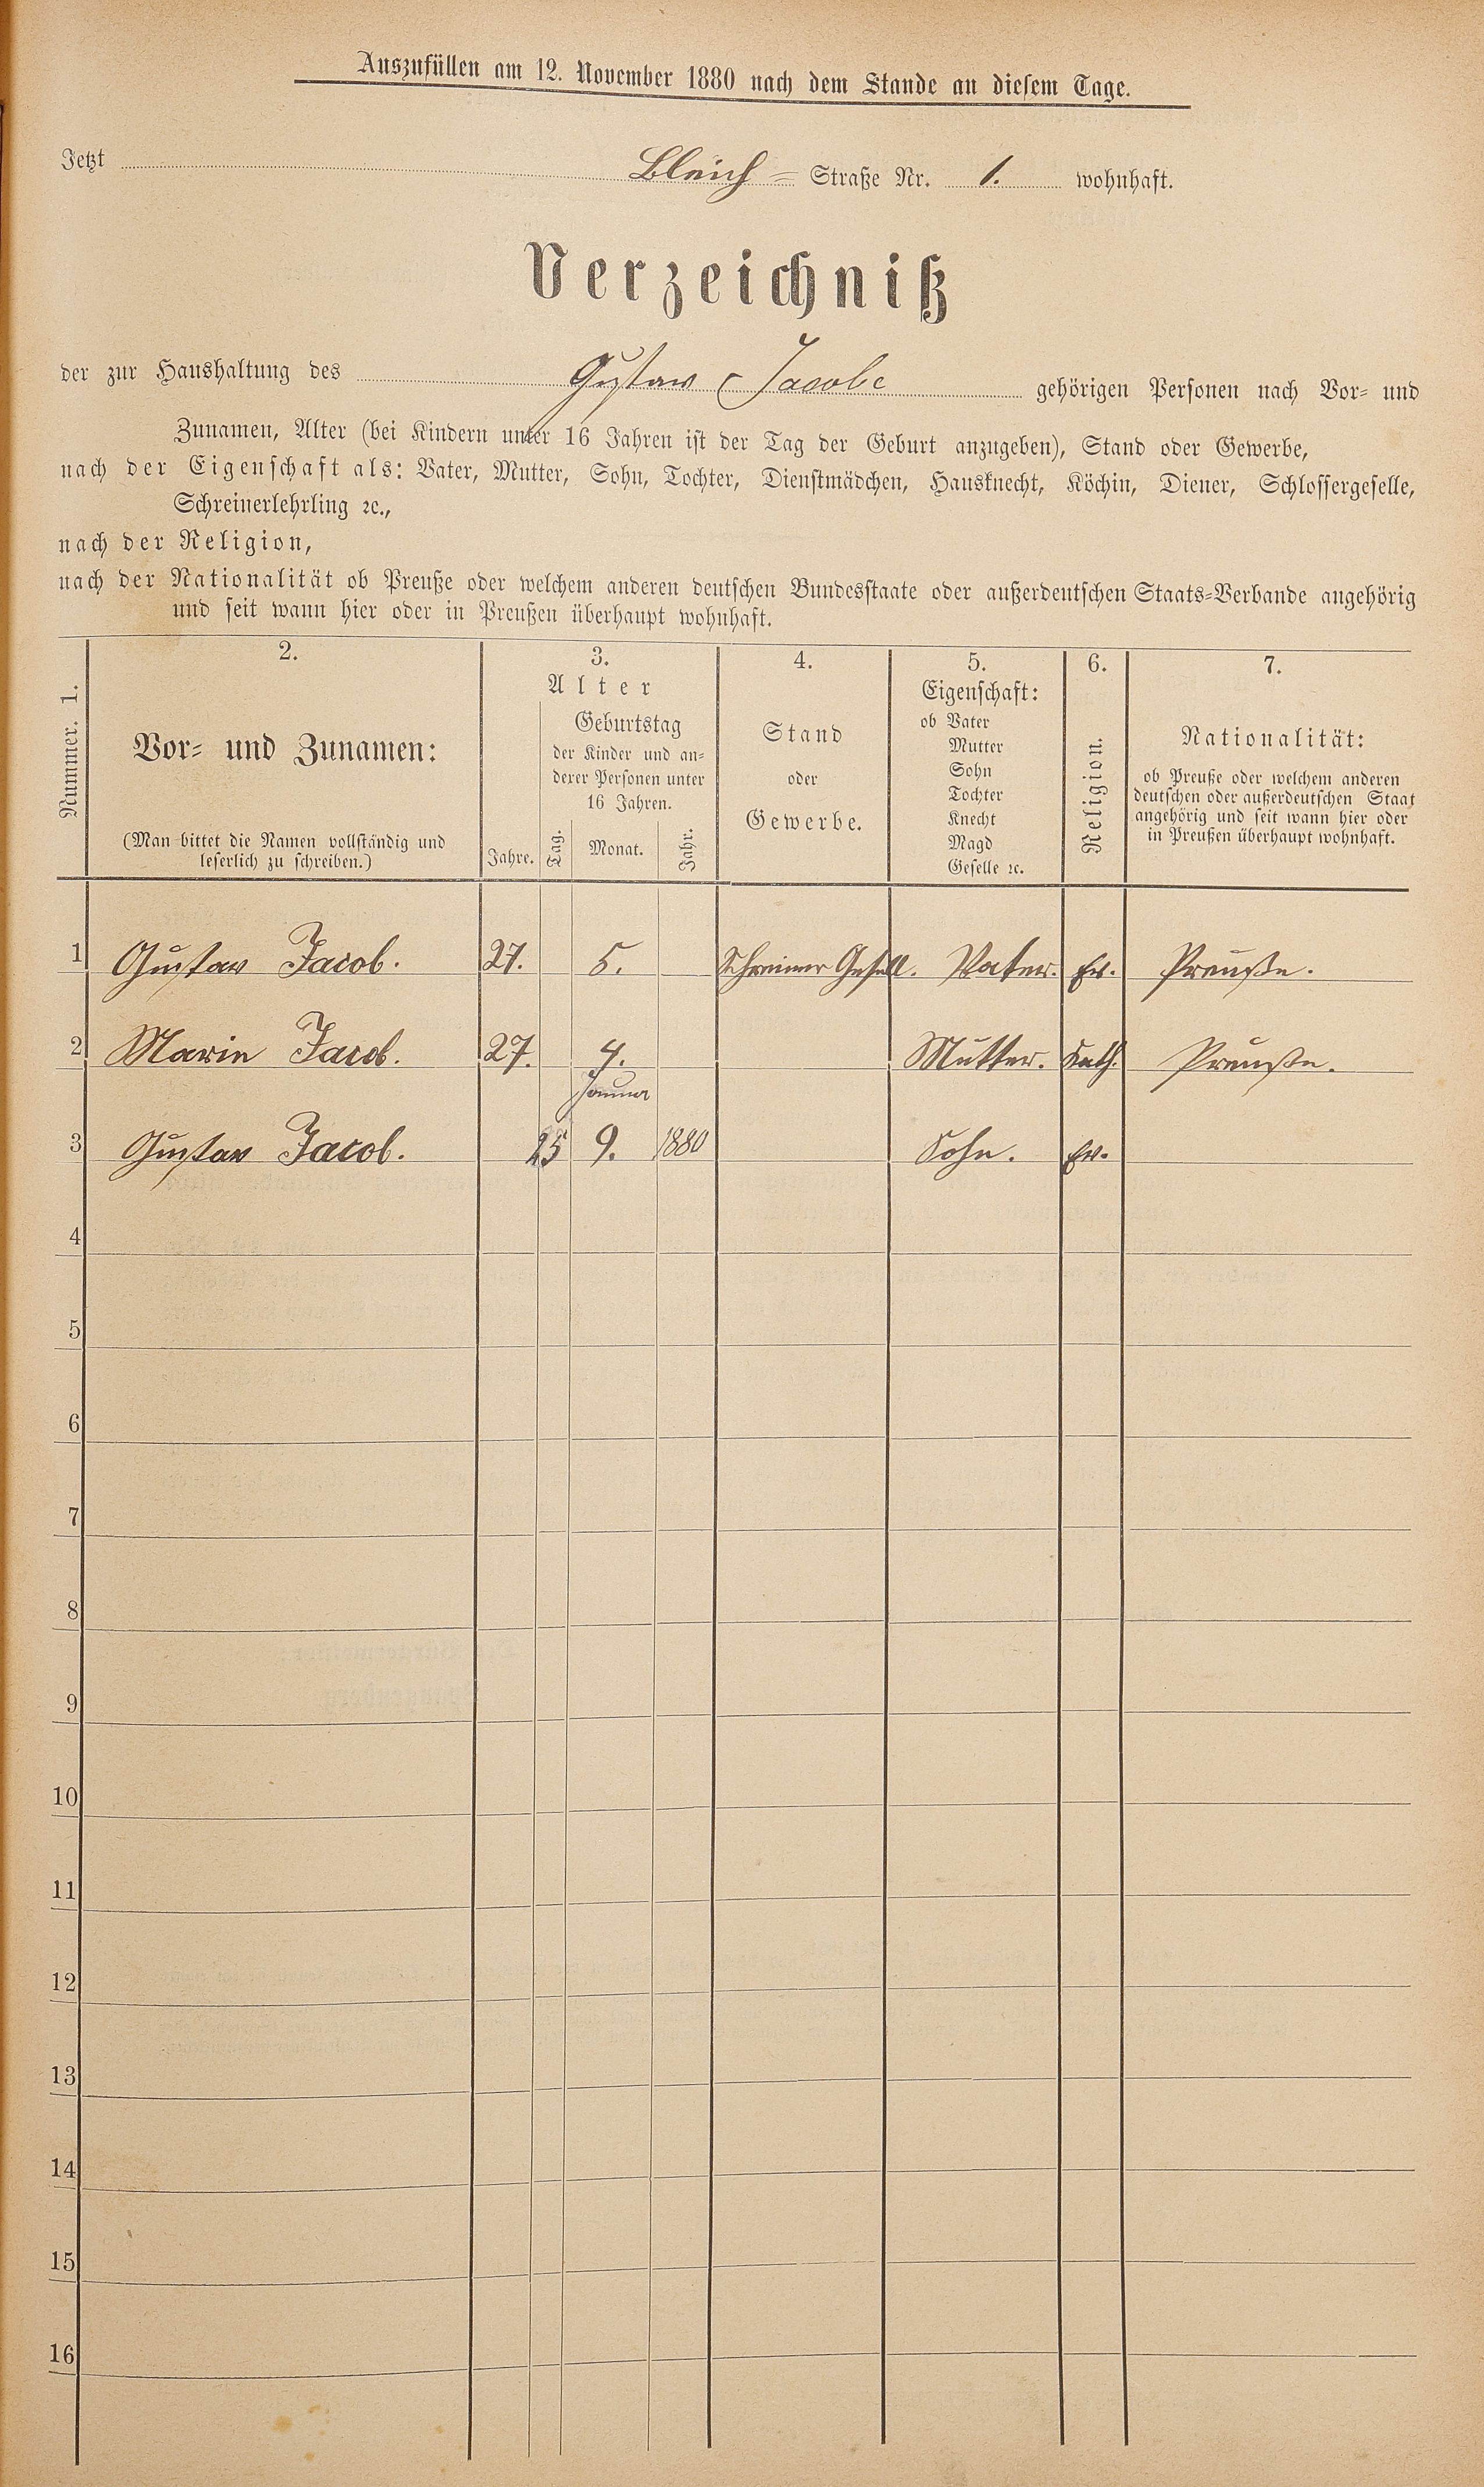 Auszufüllen am 12. November 1880 nach dem Stande an diesem Tage.
Jetzt Bleich- Straße Nr. 1. wohnhaft.
Verzeichniß
der zur Haushaltung des Gustav Jacobi gehörigen Personen nach Vor- und
Zunamen, Alter (bei Kindern unter 16 Jahren ist der Tag der Geburt anzugeben), Stand oder Gewerbe,
nach der Eigenschaft als: Vater, Mutter, Sohn, Tochter, Dienstmädchen, Hausknecht, Köchin, Diener, Schlossergeselle,
Schreinerlehrling ꝛc.,
nach der Religion,
nach der Nationalität ob Preuße oder welchem anderen deutschen Bundesstaate oder außerdeutschen Staats-Verbande angehörig
und seit wann hier oder in Preußen überhaupt wohnhaft.
Nummer. 1.
2.
Vor- und Zunamen:
(Man bittet die Namen vollständig und
leserlich zu schreiben.)
3.
Alter
Geburtstag
der Kinder und an-
derer Personen unter
16 Jahren.
Jahre. Tag. Monat. Jahr.
4.
Stand
oder
Gewerbe.
5.
Eigenschaft:
ob Vater
Mutter
Sohn
Tochter
Knecht
Magd
Geselle ꝛc.
6.
Religion.
7.
Nationalität:
ob Preuße oder welchem anderen
deutschen oder außerdeutschen Staat
angehörig und seit wann hier oder
in Preußen überhaupt wohnhaft.
1 Gustav Jacob. 27. 5. Schreiner Gesell. Vater. Ev. Preuße.
2 Marie Jacob. 27. 4. Mutter. Kath. Preuße.
Januar
3 Gustav Jacob. 25 9. 1880 Sohn. Ev.
4
5
6
7
8
9
10
11
12
13
14
15
16